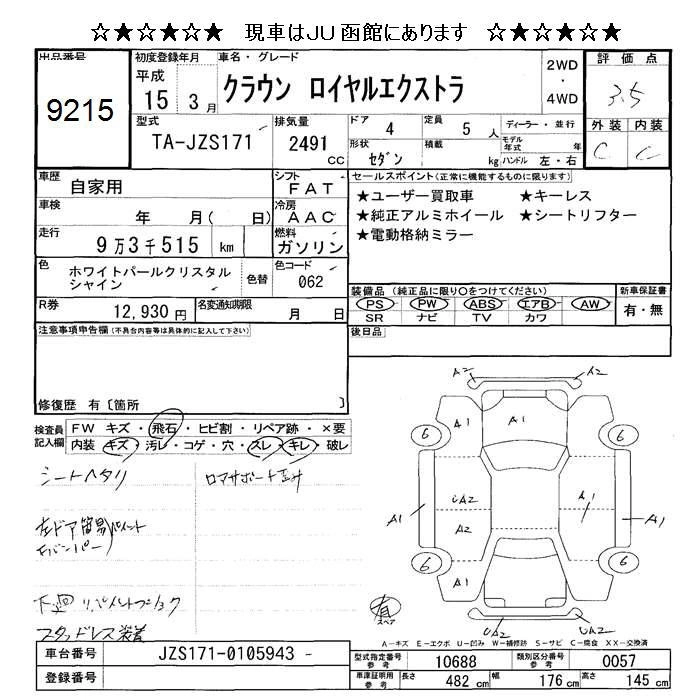 ☆★☆★☆★ 現車はJU函館にあります ☆★☆★☆★
出品番号
9215
初度登録年月
平成
15 3月
車名・グレード
クラウン ロイヤルエクストラ
2WD
・
4WD
評価点
3.5
外装 内装
C C
型式
TA-JZS171
排気量
2491
CC
ドア 4
定員 5 人
ディーラー・並行
形状 セダン
積載 kg
モデル年式 年
ハンドル 左・右
車歴 自家用
シフト FAT
車検 年 月( 日)
冷房 AAC
走行 9万3千515 km
燃料 ガソリン
色 ホワイトパールクリスタル
シャイン
色替
色コード
062
R券 12,930円
名変通知期限
月 日
セールスポイント(正常に機能するものに限ります)
★ユーザー買取車 ★キーレス
★純正アルミホイール ★シートリフター
★電動格納ミラー
装備品(純正品に限り〇をつけてください)
PS PW ABS エアB AW
SR ナビ TV カワ
新車保証書
有・無
後日品
注意事項申告欄(不具合内容等は具体的に記入して下さい)
修復歴 有〔箇所 〕
検査員
記入欄
FW キズ・飛石・ヒビ割・リペア跡・×要
内装 キズ・汚レ・コゲ・穴・スレ・キレ・破レ
シートヘタリ
左ドア簡易ペイント
下廻
スタッドレス装着
A2 A2
A1 A1
6 6
A1 UA2 A1 A1
A2
6 6
A1
有
スペア
UA2 UA2
A-キズ E-エクボ U-凹み W-補修跡 S-サビ C-腐食 XX-交換済
車台番号 JZS171-0105943
登録番号
型式指定番号
参考
10688
類別区分番号
参考
0057
車庫証明用
参考
長さ 482 cm
幅 176 cm
高さ 145 cm